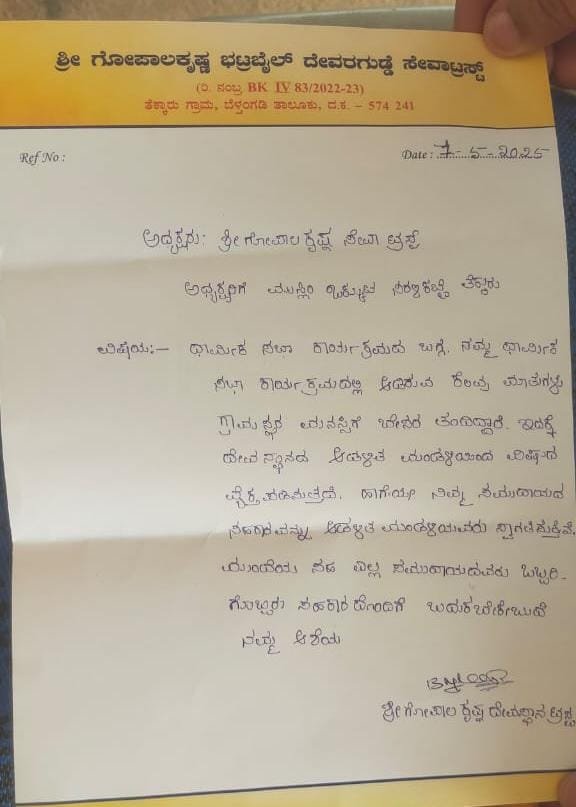 ಶ್ರೀ ಗೋಪಾಲಕೃಷ್ಣ ಭಟ್ರಬೈಲ್ ದೇವರಗುಡ್ಡೆ ಸೇವಾಟ್ರಸ್ಟ್
(ರಿ. ನಂಬ್ರ BK IV 83/2022-23)
ತೆಕ್ಕಾರು ಗ್ರಾಮ, ಬೆಳ್ತಂಗಡಿ ತಾಲೂಕು, ದ.ಕ. – 574 241
Ref No :
Date : 7-5-2025
ಅಧ್ಯಕ್ಷರು: ಶ್ರೀ ಗೋಪಾಲ ಕೃಷ್ಣ ಸೇವಾ ಟ್ರಸ್ಟ್
ಅಧ್ಯಕ್ಷರಿಗೆ ಮುಸ್ಲಿಂ ಒಕ್ಕೂಟ ಸರಳಿಕಟ್ಟೆ ತೆಕ್ಕಾರು
ವಿಷಯ:— ಧಾರ್ಮಿಕ ಸಭಾ ಕಾರ್ಯಕ್ರಮದ ಬಗ್ಗೆ. ನಮ್ಮ ಧಾರ್ಮಿಕ
ಸಭಾ ಕಾರ್ಯಕ್ರಮದಲ್ಲಿ ಆಡಿರುವ ಕೆಲವು ಮಾತುಗಳು
ಗ್ರಾಮಸ್ಥರ ಮನಸ್ಸಿಗೆ ಬೇಸರ ತಂದಿದ್ದಾರೆ. ಇದಕ್ಕೆ
ದೇವಸ್ಥಾನದ ಆಡಳಿತ ಮಂಡಳಿಯಿಂದ ವಿಷಾದ
ವ್ಯಕ್ತಪಡಿಸುತ್ತದೆ. ಹಾಗೆಯೇ ನಿಮ್ಮ ಸಮುದಾಯದ
ಸಹಕಾರವನ್ನು ಆಡಳಿತ ಮಂಡಳಿಯವರು ಸ್ವಾಗತಿಸುತ್ತೇವೆ.
ಮುಂದೆಯು ಸಹ ಎಲ್ಲ ಸಮುದಾಯದವರು ಒಬ್ಬರಿ-
ಗೊಬ್ಬರು ಸಹಕಾರದೊಂದಿಗೆ ಬದುಕಬೇಕೆಂಬುದೆ
ನಮ್ಮ ಆಶೆಯ
ಶ್ರೀ ಗೋಪಾಲ ಕೃಷ್ಣ ದೇವಸ್ಥಾನ ಟ್ರಸ್ಟ